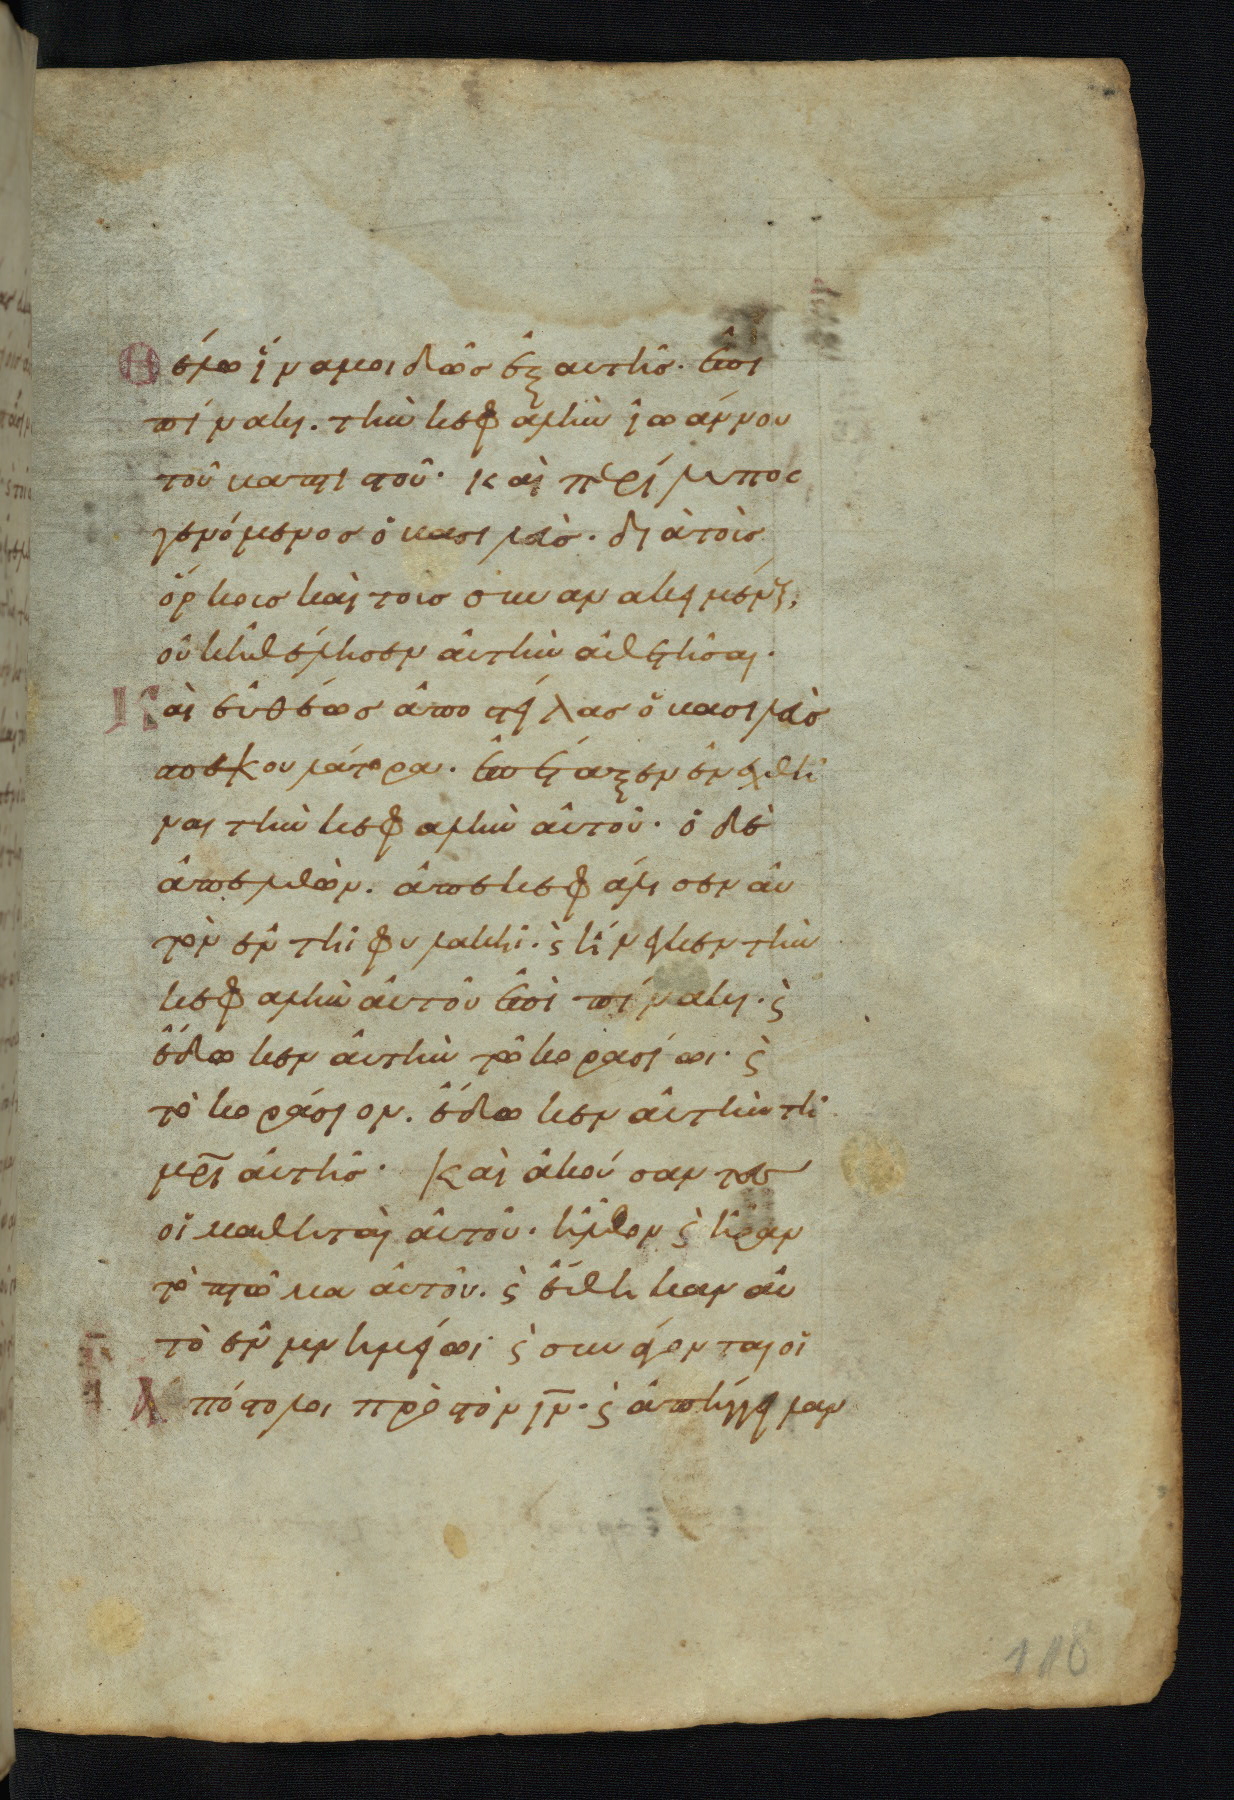 Θέλω ἵνα μοι δῶς ἐξ αυτῆς· ἐπι
πίνακι. τὴν κεφαλὴν ἰωάννου
τοῦ βαπτιστοῦ· καὶ περίλυπος
γενόμενος ὁ βασιλεὺς· διὰ τοὺς
ὅρκους καὶ τους συνανακειμένους,
οὐκ ἠθέλησεν ἀυτὴν ἀθετῆσαι·
Καὶ ἐυθέως ἀποστείλας ὁ βασιλεὺς
σπεκουλάτορα· ἐπέταξεν ἐνεχθῆ
ναι τὴν κεφαλὴν ἀυτοῦ· ὁ δὲ
ἀπελθὼν. ἀπεκεφάλισεν ἀυ
τὸν ἐν τῆ φυλακῆ· ϛ ἤνεγκεν τὴν
κεφαλὴν ἀυτοῦ ἐπὶ πίνακι· ϛ
ἔδωκεν ἀυτὴν τῶ κορασίωι· ϛ
τὸ κοράσιον. ἔδωκεν ἀυτὴν τῆ
μρ̅ι ἀυτῆς· Καὶ ἀκούσαντες
οἱ μαθηταὶ ἀυτοῦ· ἦλθον ϛ ἦραν
τὸ πτῶμα ἀυτοῦ· ϛ ἔθηκαν ἀυ
τὸ ἐν μνημείωι· ϛ συνάγονται οἱ
Ἀπόστολοι πρὸς τὸν ι̅ν· ϛ ἀπήγγειλαν
110